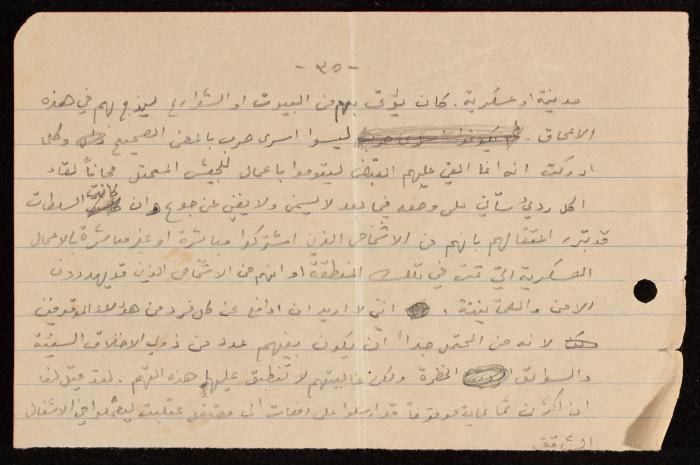 - ٣٥ -
مدنية او عسكرية. كان يؤتى بهم من البيوت او الشوارع ليزج بهم في هذه
الاعماق. ليسوا اسرى حرب بالمعنى الصحيح وكل
ادركت انه انما القي عليهم القبض ليقوموا باعمال للجيش المحتل مجاناً لقاء
اكل رديء سآتي على وصفه فيما بعد لا يسمن ولا يغني عن جوع وان كانت السلطات
قد تبرر اعتقالهم بانهم من الاشخاص الذين اشتركوا مباشرة او غير مباشرة بالاعمال
العسكرية التي تمت في تلك المنطقة او انهم من الاشخاص الذين قد يهددون
الامن والطمأنينة. انني لا اريد ان ادافع عن كل فرد من هؤلاء الموقوفين
لانه من المحتمل جداً ان يكون بينهم عدد من ذوي الاخلاق السيئة
والسوابق الخطرة ولكن غالبيتهم لا تنطبق عليها هذه التهم. لقد قيل لنا
ان اكثر من ثمانماية موقوفاً قد ارسلوا على دفعات الى معتقل عتليت ليعملوا في الاشغال
الشاقة.